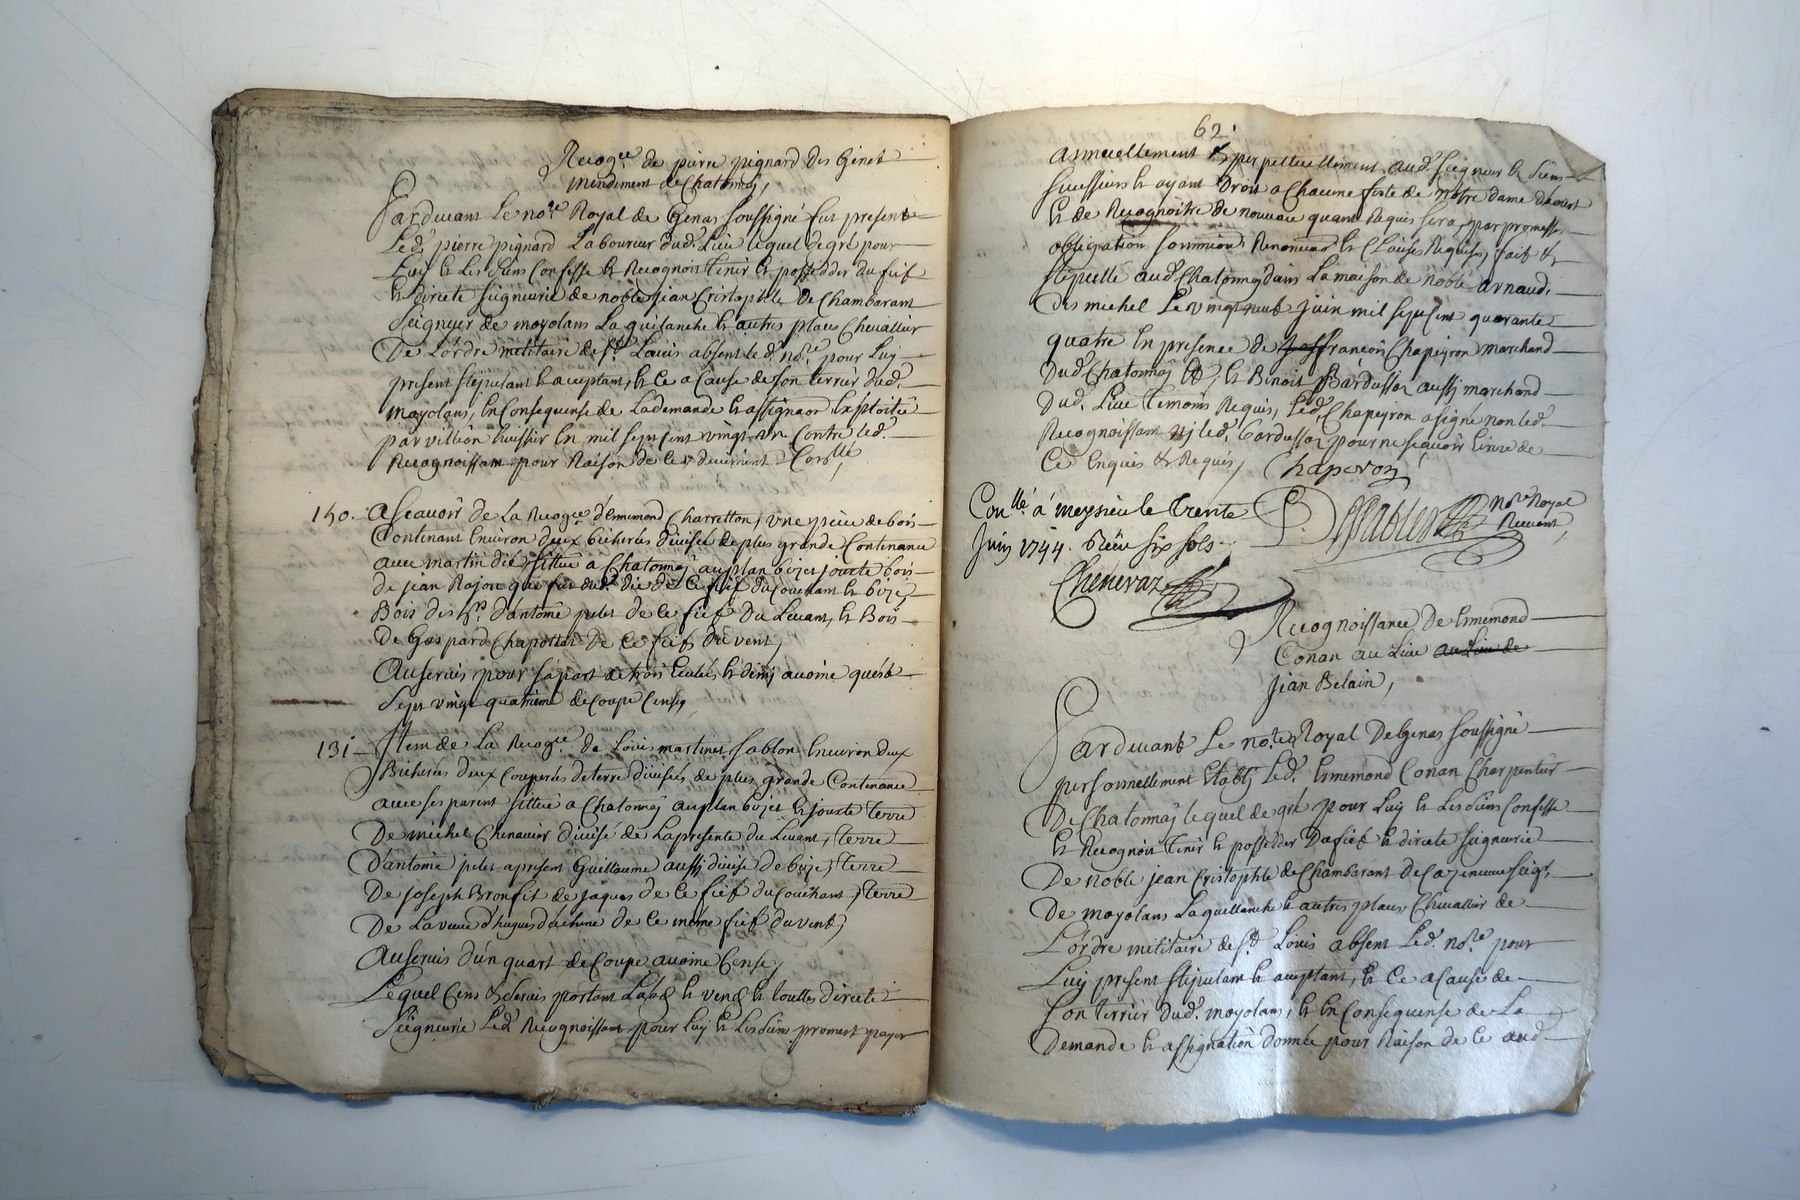 Recog.ce de pierre pignard des Genet
mendement de Chatonnay,
Pardevant Le no.re Royal de Genas soussigné fut present
Led. pierre pignard Laboureur dud. Lieu lequel de gré pour
Luy & Les siens Confesse & Recognoit tenir & posseder du fief
& directe seigneurie de noble jean Cristophle de Chambarant
Seigneur de moyolans La guilanche & autres places Chevallier
De L'ordre militaire de St. Louis absent led. no.re pour Luy
present stipulant & acceptant, & Ce a Cause de son terrier dud.
moyolans, en Consequense de Lademande & assignaon Exploitée
par villien huissier en mil sept cent vingt un Contre led.
Recognoissant pour Raison de Ce deuement Con.llé
150. Ascavoir de La Recog.ce d'Ennemond Charretton, une piece de bois
Contenant Environ deux bicherées divisée de plus grande Contenance
avec martin situé a Chatonnay au plan bojet jouxte bois
de jean Rajon de Ce fief du Couchant & bize
Bois des h.rs d'antoine pelet de Ce fief Du Levant, & Bois
De Gaspard Chapottat De Ce fief du vent,
Auservis pour sa part de trois Civiers & demy avoine quest
Sept vingt quatrieme de Coupe Cense,
131. Item de La Recog.ce de Louis martinet sablon Environ deux
Bicherées deux Couperées de terre divisées de plus grande Contenance
avec ses parent sittué a Chatonnay au plan bojet & jouxte terre
De michel Chenavier divisé de Lapresente du Levant, terre
D'antoine pelet apresent Guillaume aussy divisé de bize, terre
De joseph Bronfit de jaques de Ce fief du Couchant, terre
De La veuve d'hugues de Ce même fief du vent,
Auservis d'un quart de Coupe avoine Cense,
Lequel Cens & servis portant Laods & vends & touttes directe
Seigneurie Led. Recognoissant pour Luy & Les siens promest payer
62.
annuellement & perpetuellement aud. seigneur & siens
successeurs & ayant Droit a Chacune feste de Notre dame d'aoust
& de Recognoitre de nouveau quand Requis sera, par promesse,
obligation soumission Renonciaon & Clauses Requises, fait &
stipullé aud. Chatonnay dans La maison de noble arnaud
Des michel Le vingt neuf juin mil sept cent quarante
quatre en presence de françois Chapeyron marchand
dud. Chatonnay & Benoit Bardussot aussy marchand
Dud. Lieu temoins Requis, Led. Chapeyron a signé non led.
Recognoissant ny led. bardussot pour ne scavoir Ecrire de
Ce Enquis & Requis, Chaperon
Con.llé á meysieu le trente
Juin 1744. Reçu six sols
Chenevaz
no.re Royal
Recevant,
Recognoissance De Ennemond
Conan au Lieu au Lieu de
Jean Belain,
Pardevant Le no.re Royal De Genas soussigné
personnellement Etably Led. Ennemond Conan Charpentier
De Chatonnay lequel de gré pour Luy & Les siens Confesse
& Recognoit tenir & posseder Du fief & directe seigneurie
De noble jean Cristophle de Chambarant De Cazeneuve seig.r
De moyolans Laguillanche & autres places Chevallier de
L'ordre militaire de St. Louis absent Led. no.re pour
Luy present stipulant & acceptant, & Ce a Cause de
son terrier dud. moyolans, & En Consequense de La
Demande & assignation donnée pour Raison de Ce aud.